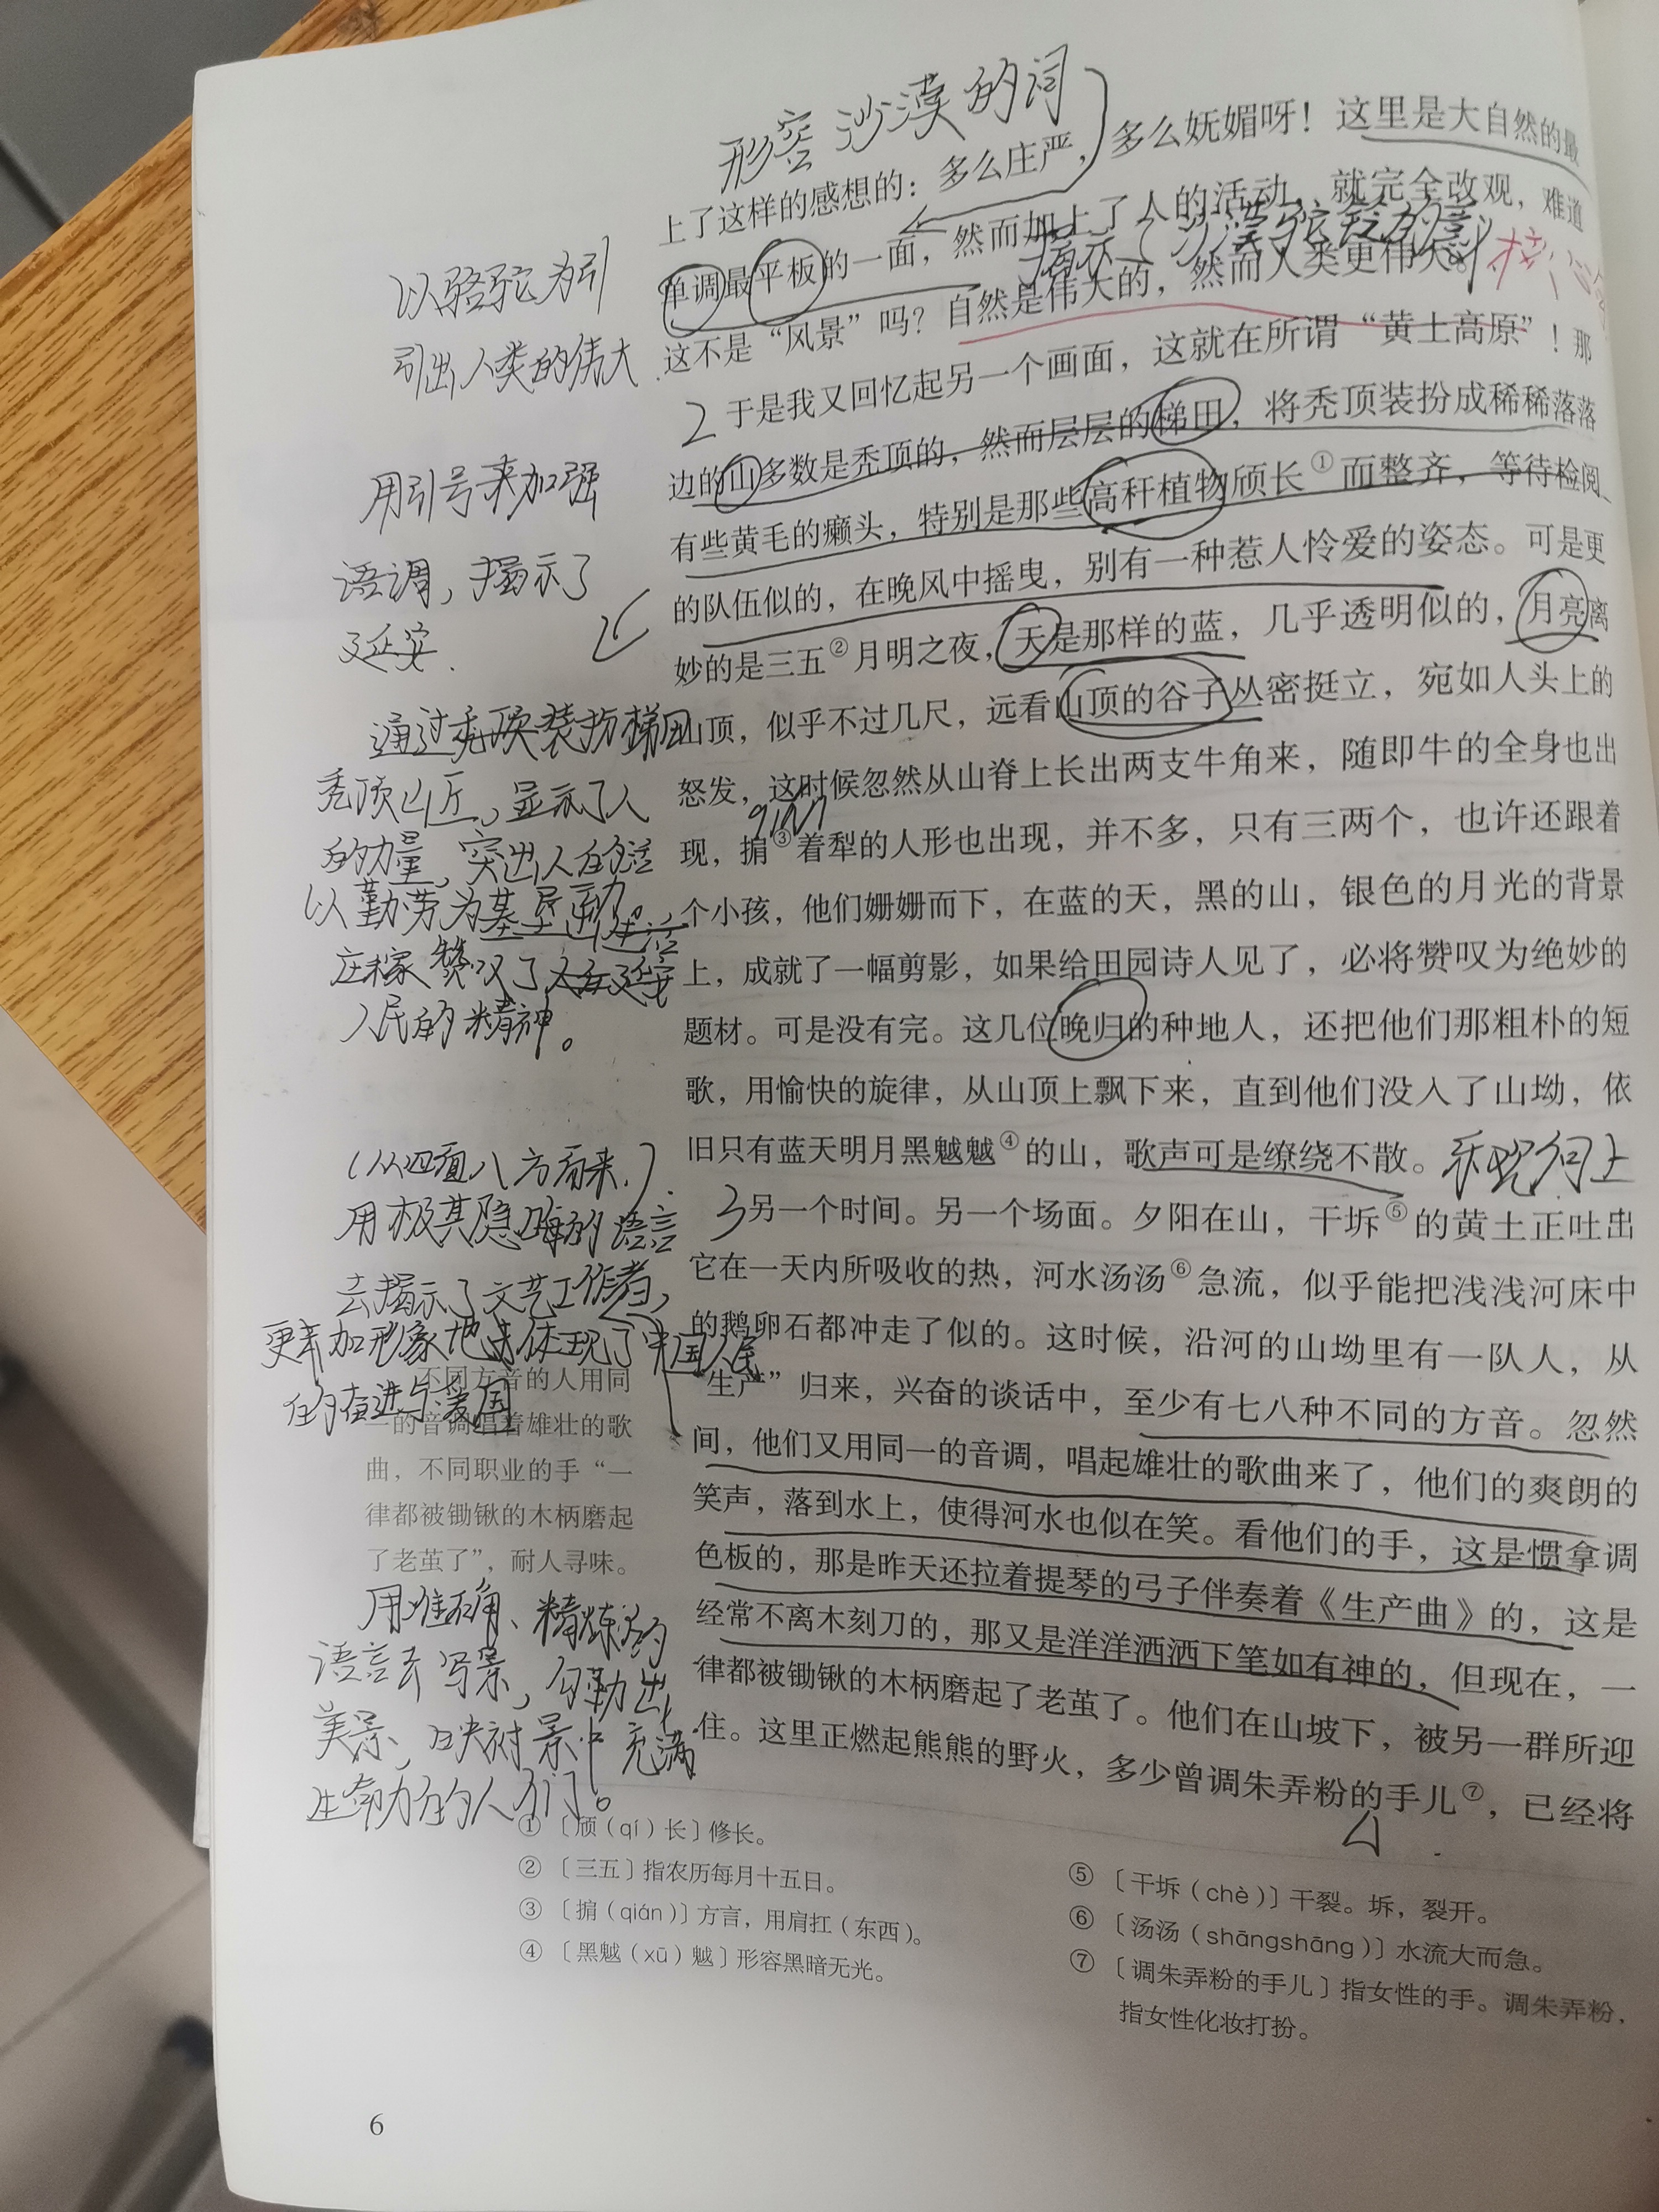 形容沙漠的词
上了这样的感想的：多么庄严，多么妩媚呀！这里是大自然的最
单调最平板的一面，然而加上了人的活动，就完全改观，难道
这不是“风景”吗？自然是伟大的，然而人类更伟大。
于是我又回忆起另一个画面，这就在所谓“黄土高原”！那
边的山多数是秃顶的，然而层层的梯田，将秃顶装扮成稀稀落落
有些黄毛的癞头，特别是那些高秆植物颀长①而整齐，等待检阅
的队伍似的，在晚风中摇曳，别有一种惹人怜爱的姿态。可是更
妙的是三五②月明之夜，天是那样的蓝，几乎透明似的，月亮离
山顶，似乎不过几尺，远看山顶的谷子丛密挺立，宛如人头上的
怒发，这时候忽然从山脊上长出两支牛角来，随即牛的全身也出
现，掮③着犁的人形也出现，并不多，只有三两个，也许还跟着
个小孩，他们姗姗而下，在蓝的天，黑的山，银色的月光的背景
上，成就了一幅剪影，如果给田园诗人见了，必将赞叹为绝妙的
题材。可是没有完。这几位晚归的种地人，还把他们那粗朴的短
歌，用愉快的旋律，从山顶上飘下来，直到他们没入了山坳，依
旧只有蓝天明月黑魆魆④的山，歌声可是缭绕不散。
3 另一个时间。另一个场面。夕阳在山，干坼⑤的黄土正吐出
它在一天内所吸收的热，河水汤汤⑥急流，似乎能把浅浅河床中
的鹅卵石都冲走了似的。这时候，沿河的山坳里有一队人，从
“生产”归来，兴奋的谈话中，至少有七八种不同的方音。忽然
间，他们又用同一的音调，唱起雄壮的歌曲来了，他们的爽朗的
笑声，落到水上，使得河水也似在笑。看他们的手，这是惯拿调
色板的，那是昨天还拉着提琴的弓子伴奏着《生产曲》的，这是
经常不离木刻刀的，那又是洋洋洒洒下笔如有神的，但现在，一
律都被锄锹的木柄磨起了老茧了。他们在山坡下，被另一群所迎
住。这里正燃起熊熊的野火，多少曾调朱弄粉的手儿⑦，已经将
以骆驼为引
引出人类的伟大
用引号来加强
语调，揭示了
延安.
通过秃顶装扮梯田
秃顶山丘，显示了人
的力量，突出人的活
以勤劳为基
庄稼赞叹了
人民的精神。
qián
（从四面八方而来.）
用极其隐晦的语言
去揭示了文艺工作者，
更加形象地体现了中国人民
的奋进与爱国
不同方音的人用同
一的音调唱着雄壮的歌
曲，不同职业的手“一
律都被锄锹的木柄磨起
了老茧了”，耐人寻味。
用准确、精炼的
语言去写景，勾勒出
美景，映衬景中充满
生命力的人们。
① 〔颀（qí）长〕修长。
② 〔三五〕指农历每月十五日。
③ 〔掮（qián）〕方言，用肩扛（东西）。
④ 〔黑魆（xū）魆〕形容黑暗无光。
⑤ 〔干坼（chè）〕干裂。坼，裂开。
⑥ 〔汤汤（shāngshāng）〕水流大而急。
⑦ 〔调朱弄粉的手儿〕指女性的手。调朱弄粉，
指女性化妆打扮。
6